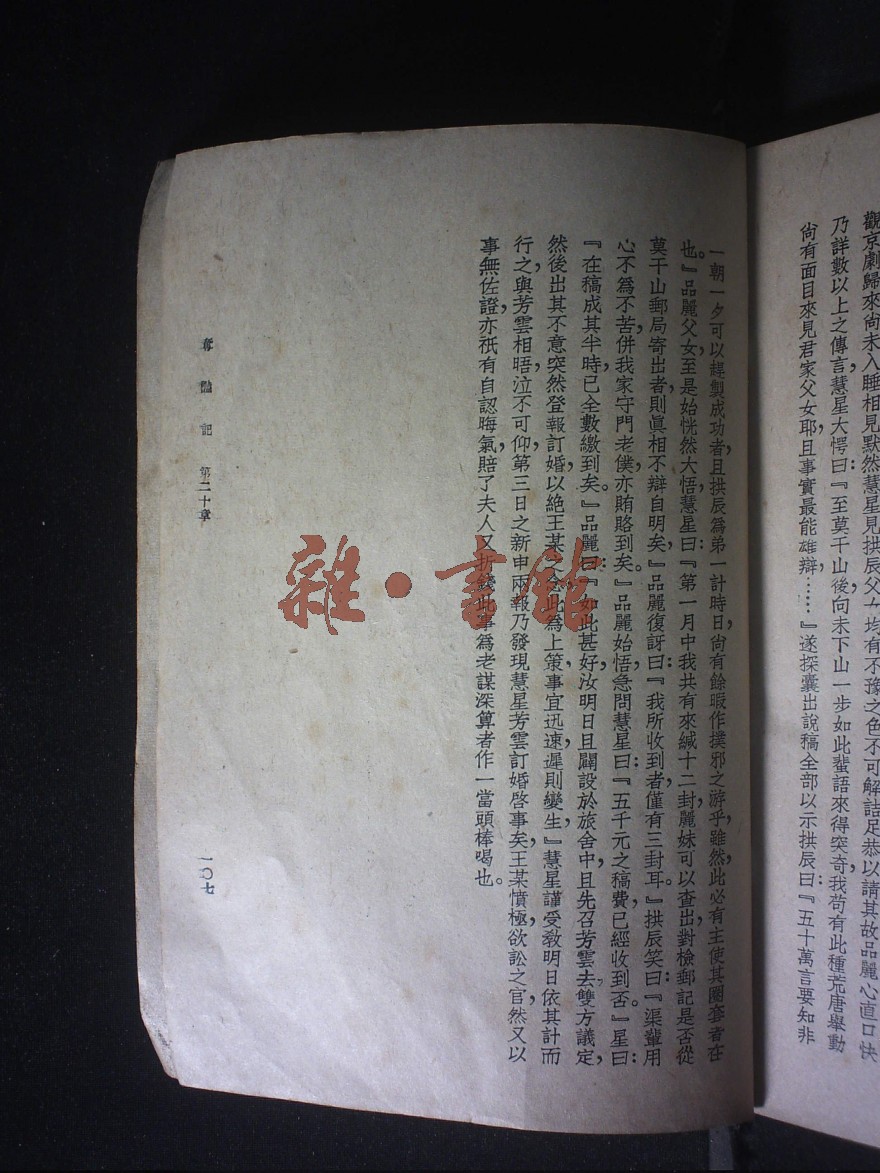 觀京劇歸來尙未入睡相見默然慧星見拱辰父女均有不豫之色不可解詰足恭以請其故品麗心直口快
乃詳數以上之傳言慧星大愕曰『至莫干山後向未下山一步如此蜚語來得突奇我苟有此種荒唐舉動
尙有面目來見君家父女耶且事實最能雄辯……』遂探囊出說稿全部以示拱辰曰『五十萬言要知非
一朝一夕可以趕製成功者且拱辰爲弟一計時日尙有餘暇作撲邪之游乎雖然此必有主使其圈套者在
也。』品麗父女至是始恍然大悟慧星曰：『第一月中我共有來緘十二封麗妹可以查出對檢郵記是否從
莫干山郵局寄出者則眞相不辯自明矣』品麗復訝曰：『我所收到者僅有三封耳。』拱辰笑曰『渠輩用
心不爲不苦併我家守門老僕亦賄賂到矣。』品麗始悟急問慧星曰：『五千元之稿費已經收到否。』星曰：
『在稿成其半時已全數繳到矣。』品麗曰：『如此甚好汝明日且闢設於旅舍中，且先召芳雲去雙方議定，
然後出其不意突然登報訂婚以絕王某之念此爲上策，事宜迅速遲則變生，』慧星謹受敎明日依其計而
行之，與芳雲相晤泣不可仰，第三日之新申兩報乃發現慧星芳雲訂婚啓事矣，王某憤極欲訟之官，然又以
事無佐證，亦祇有自認晦氣賠了夫人又折錢此事爲老謀深算者作一當頭棒喝也。
奪豔記 第二十章
一〇七
雜·書館